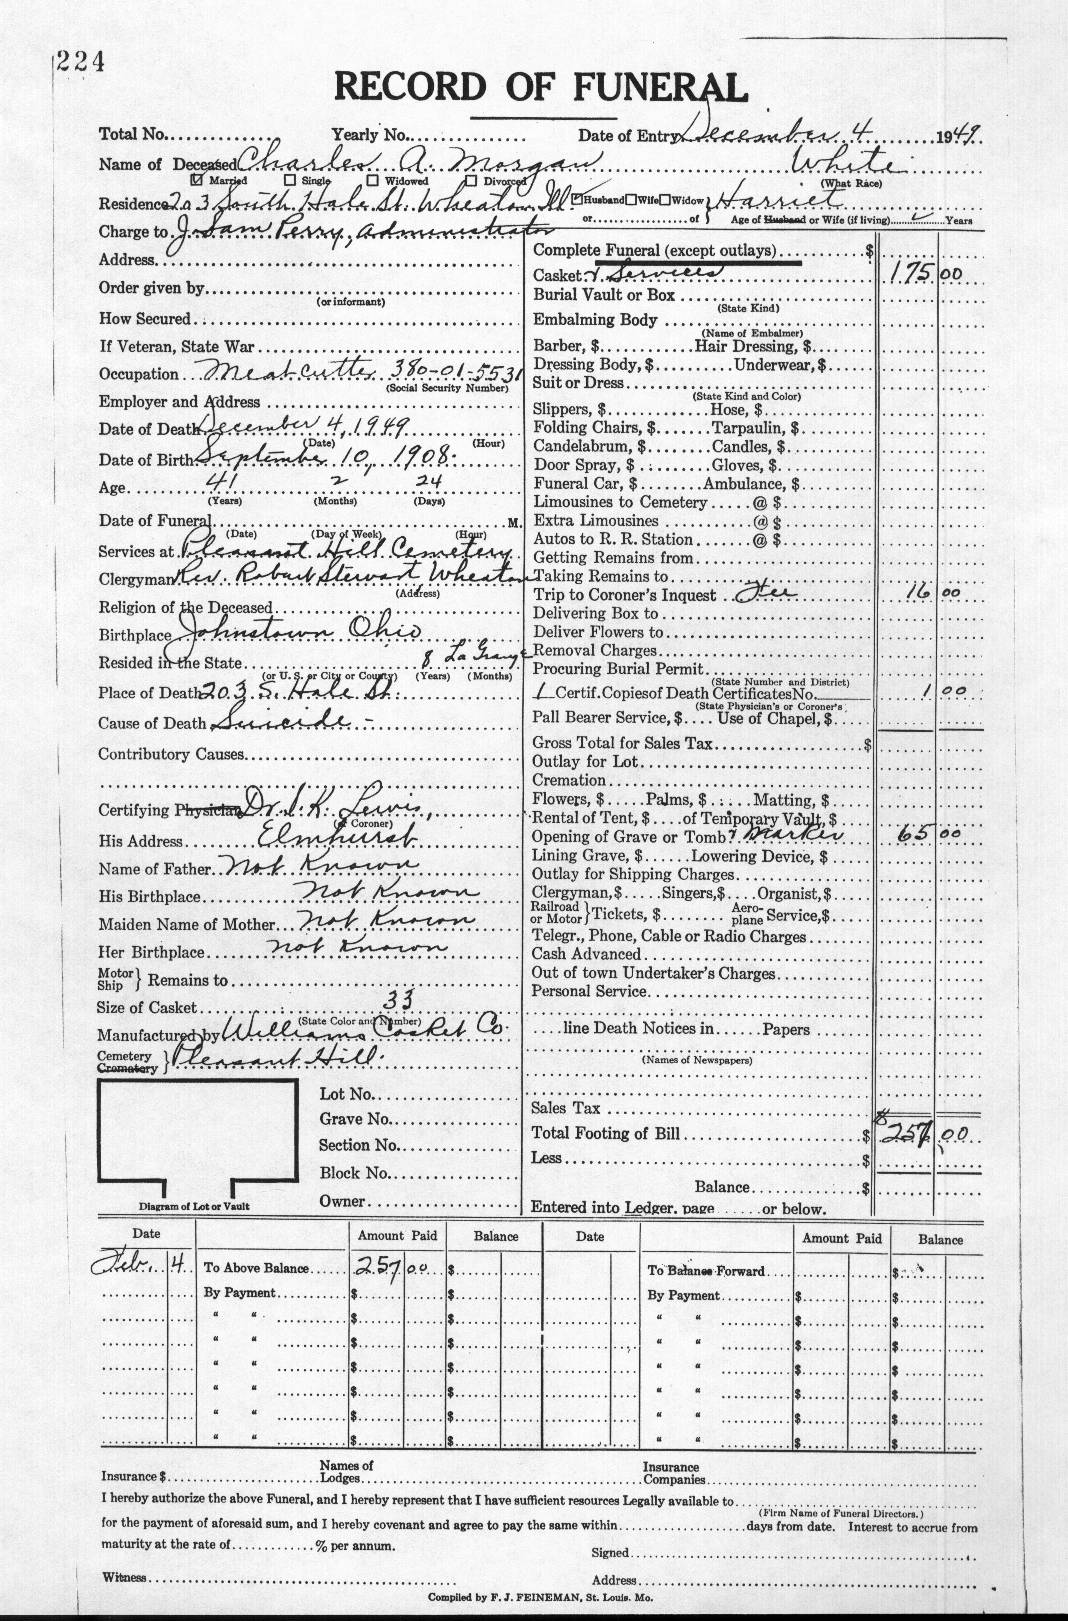 224
RECORD OF FUNERAL
Total No. Yearly No. Date of Entry December 4 1949.
Name of Deceased Charles A. Morgan White
Married Single Widowed Divorced (What Race)
Residence 203 South Hale St. Wheaton Ill. Husband Wife Widow } Harriet
or of } Age of Husband or Wife (if living) Years
Charge to J. Sam Perry, Administrator
Address
Order given by
(or informant)
How Secured
If Veteran, State War
Occupation Meat cutter 380-01-5531
(Social Security Number)
Employer and Address
Date of Death December 4, 1949
(Date) (Hour)
Date of Birth September 10, 1908.
Age 41 2 24
(Years) (Months) (Days)
Date of Funeral M.
(Date) (Day of Week) (Hour)
Services at Pleasant Hill Cemetery
Clergyman Rev. Robert Stewart Wheaton
(Address)
Religion of the Deceased
Birthplace Johnstown Ohio
Resided in the State 8 La Grange
(or U. S. or City or County) (Years) (Months)
Place of Death 203 S. Hale St.
Cause of Death Suicide -
Contributory Causes
Certifying Physician Dr. J. K. Lewis,
(or Coroner)
His Address Elmhurst
Name of Father Not Known
His Birthplace Not Known
Maiden Name of Mother Not Known
Her Birthplace Not Known
Motor Ship } Remains to
Size of Casket 33
(State Color and Number)
Manufactured by Williams Casket Co.
Cemetery Crematory } Pleasant Hill.
Diagram of Lot or Vault
Lot No.
Grave No.
Section No.
Block No.
Owner
Complete Funeral (except outlays) $
Casket & Services 175 00
Burial Vault or Box
(State Kind)
Embalming Body
(Name of Embalmer)
Barber, $ Hair Dressing, $
Dressing Body, $ Underwear, $
Suit or Dress
(State Kind and Color)
Slippers, $ Hose, $
Folding Chairs, $ Tarpaulin, $
Candelabrum, $ Candles, $
Door Spray, $ Gloves, $
Funeral Car, $ Ambulance, $
Limousines to Cemetery @ $
Extra Limousines @ $
Autos to R. R. Station @ $
Getting Remains from
Taking Remains to
Trip to Coroner's Inquest Fee 16 00
Delivering Box to
Deliver Flowers to
Removal Charges
Procuring Burial Permit
(State Number and District)
1 Certif. Copies of Death Certificates No. 1 00
(State Physician's or Coroner's
Pall Bearer Service, $ Use of Chapel, $
Gross Total for Sales Tax $
Outlay for Lot
Cremation
Flowers, $ Palms, $ Matting, $
Rental of Tent, $ of Temporary Vault, $
Opening of Grave or Tomb & Marker 65 00
Lining Grave, $ Lowering Device, $
Outlay for Shipping Charges
Clergyman, $ Singers, $ Organist, $
Railroad or Motor } Tickets, $ Aero-plane Service, $
Telegr., Phone, Cable or Radio Charges
Cash Advanced
Out of town Undertaker's Charges
Personal Service
line Death Notices in Papers
(Names of Newspapers)
Sales Tax
Total Footing of Bill $ $257 00
Less $
Balance $
Entered into Ledger, page or below.
Date Amount Paid Balance Date Amount Paid Balance
Feb. 4 To Above Balance 257 00 $ To Balance Forward $
By Payment $ $ By Payment $ $
" " $ $ " " $ $
" " $ $ " " $ $
" " $ $ " " $ $
" " $ $ " " $ $
" " $ $ " " $ $
" " $ $ " " $ $
Insurance $ Names of Lodges Insurance Companies
I hereby authorize the above Funeral, and I hereby represent that I have sufficient resources Legally available to
(Firm Name of Funeral Directors.)
for the payment of aforesaid sum, and I hereby covenant and agree to pay the same within days from date. Interest to accrue from
maturity at the rate of % per annum.
Signed
Witness Address
Compiled by F. J. FEINEMAN, St. Louis. Mo.